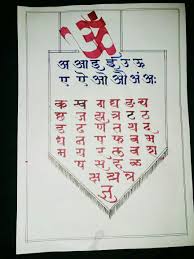 ॐ
अ आ इ ई उ ऊ
ए ऐ ओ औ अं अः
क ख ग घ ङ च
छ ज झ ञ ट ठ
ड ढ ण त थ द
ध न प फ ब भ
म य र ल व श
ष स ह ळ
क्ष त्र
ज्ञ